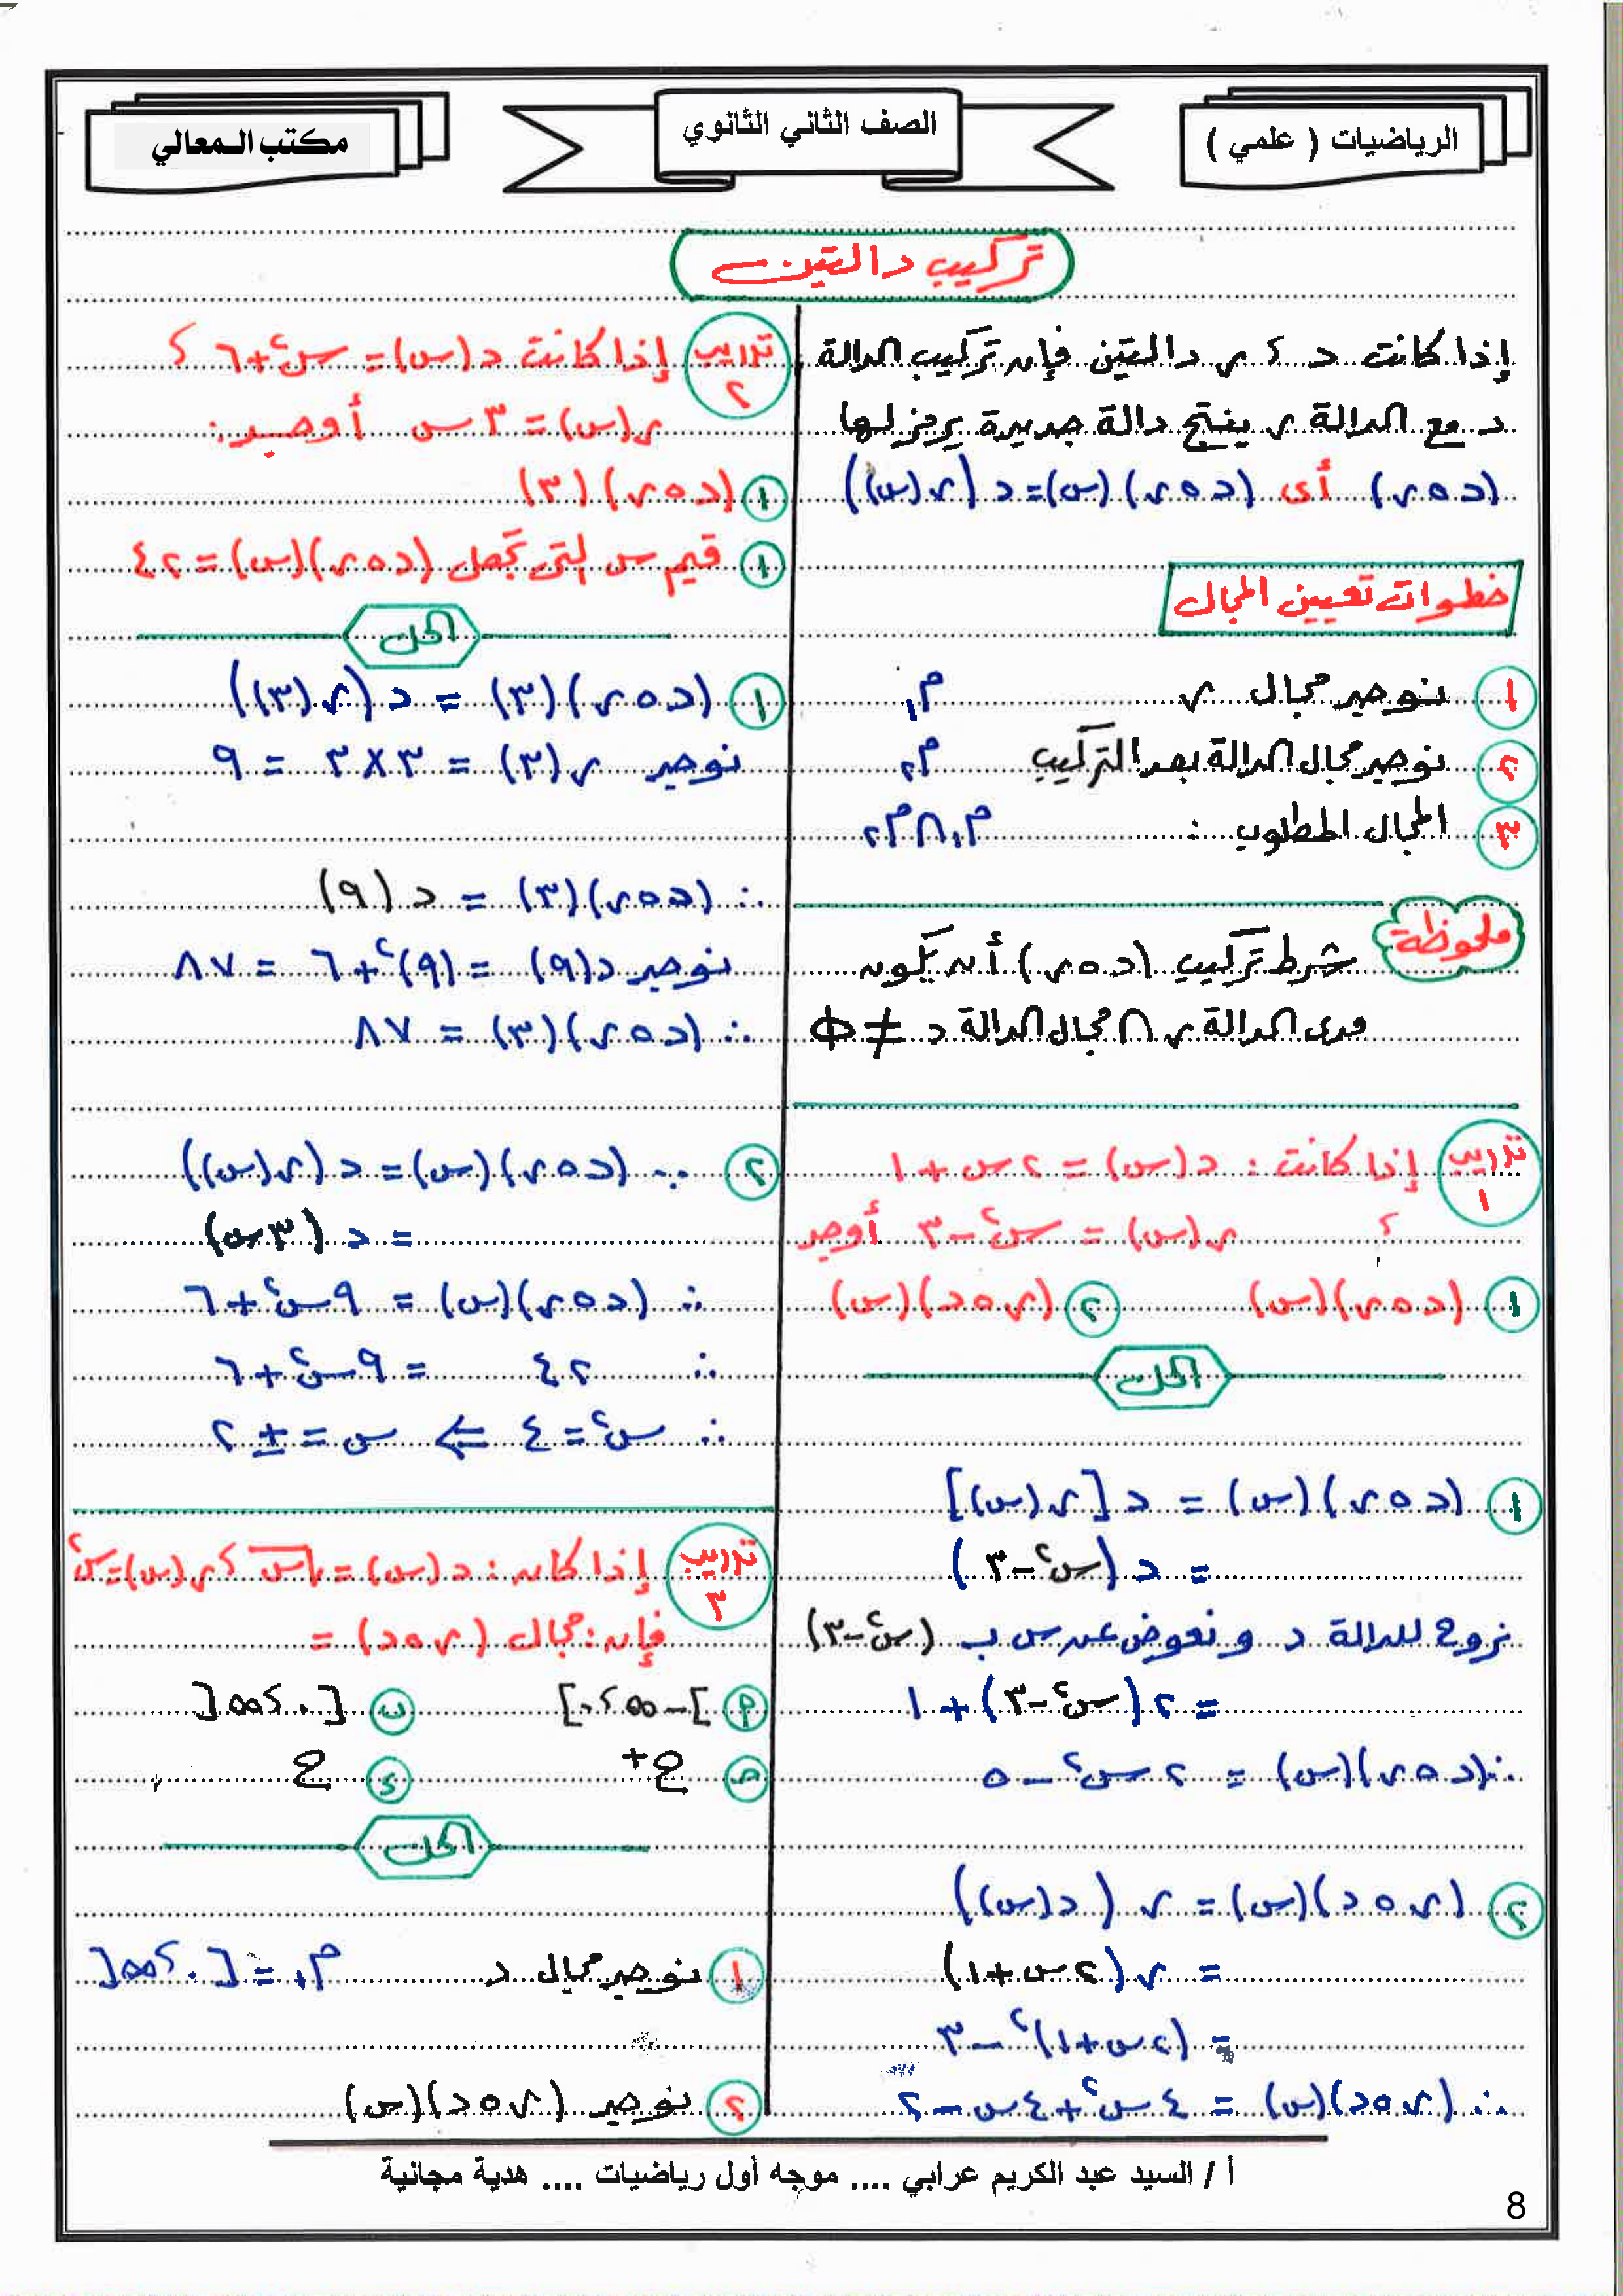 الرياضيات ( علمي )
الصف الثاني الثانوي
مكتب المعالي
تركيب دالتين
إذا كانت د ؟ ر دالتين فإن تركيب الدالة
د مع الدالة ر ينتج دالة جديدة يرمز لها
(د ο ر) أى (د ο ر)(س) = د (ر(س))
خطوات تعيين المجال
١ نوجد مجال ر م١
٢ نوجد مجال الدالة بعد التركيب م٢
٣ المجال المطلوب : م١ ∩ م٢
ملحوظة شرط تركيب (د ο ر) أن يكون
مدى الدالة ر ∩ مجال الدالة د ≠ Φ
تدريب ١ إذا كانت : د(س) = ٢س + ١
؟ ر(س) = س² - ٣ أوجد
١ (د ο ر)(س) ٢ (ر ο د)(س)
الحل
١ (د ο ر)(س) = د [ر(س)]
= د (س² - ٣)
نروح للدالة د و نعوض عن س ب (س² - ٣)
= ٢(س² - ٣) + ١
∴ (د ο ر)(س) = ٢س² - ٥
٢ (ر ο د)(س) = ر (د(س))
= ر (٢س + ١)
= (٢س + ١)² - ٣
∴ (ر ο د)(س) = ٤س² + ٤س - ٢
تدريب ٢ إذا كانت د(س) = س² + ٦ ؟
ر(س) = ٣س أوجد :
١ (د ο ر)(٣)
١ قيم س التى تجعل (د ο ر)(س) = ٤٢
الحل
١ (د ο ر)(٣) = د (ر(٣))
نوجد ر(٣) = ٣ × ٣ = ٩
∴ (د ο ر)(٣) = د (٩)
نوجد د(٩) = (٩)² + ٦ = ٨٧
∴ (د ο ر)(٣) = ٨٧
٢ ∵ (د ο ر)(س) = د (ر(س))
= د (٣س)
∴ (د ο ر)(س) = ٩س² + ٦
∴ ٤٢ = ٩س² + ٦
∴ س² = ٤ ⇐ س = ± ٢
تدريب ٣ إذا كان : د(س) = √س ؟ ر(س) = س²
فإن : مجال (ر ο د) =
م ]-∞ ؟ ٠] ب [٠ ؟ ∞[
ح ع+ د ع
الحل
١ نوجد مجال د م١ = [٠ ؟ ∞[
٢ نوجد (ر ο د)(س)
أ / السيد عبد الكريم عرابي .... موجه أول رياضيات .... هدية مجانية
8